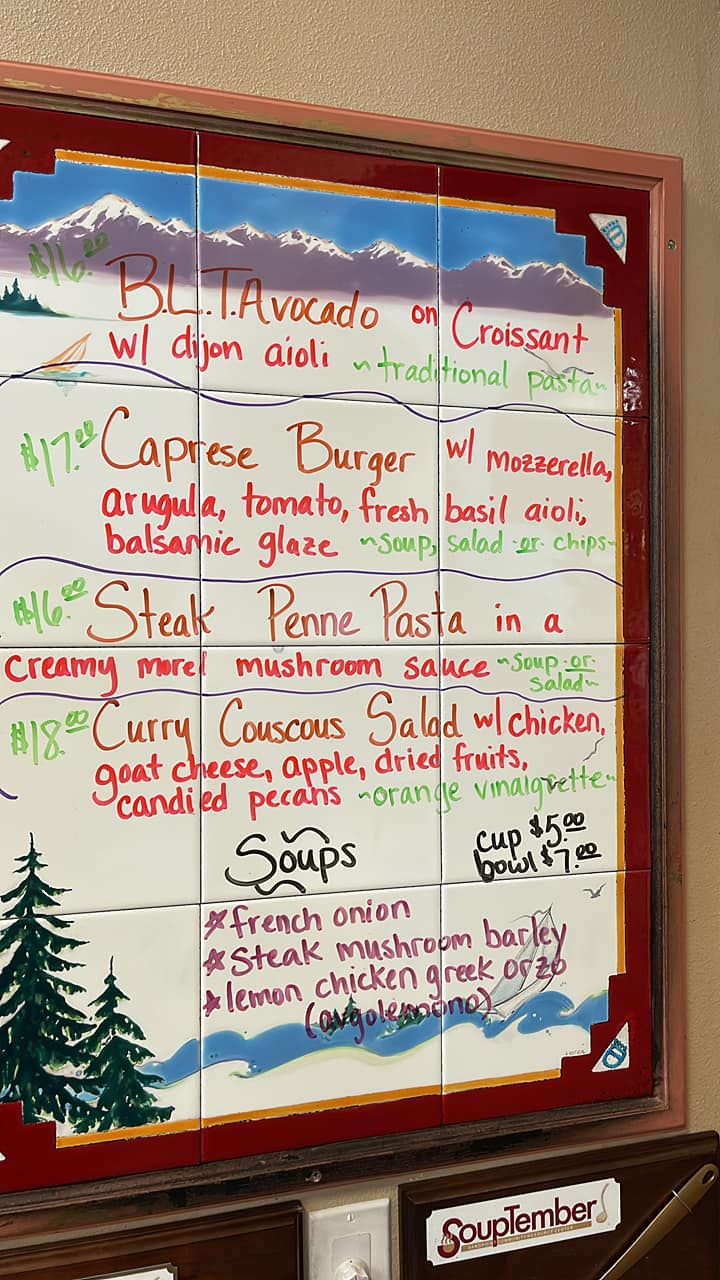 $16.00 B.L.T. Avocado on Croissant
w/ dijon aioli ~traditional pasta~
$17.00 Caprese Burger w/ mozzerella,
arugula, tomato, fresh basil aioli,
balsamic glaze ~soup, salad -or- chips~
$16.00 Steak Penne Pasta in a
creamy morel mushroom sauce ~soup -or-
salad~
$18.00 Curry Couscous Salad w/ chicken,
goat cheese, apple, dried fruits,
candied pecans ~orange vinaigrette~
Soups
cup $5.00
bowl $7.00
*french onion
*Steak mushroom barley
*lemon chicken greek orzo
(avgolemono)
SoupTember